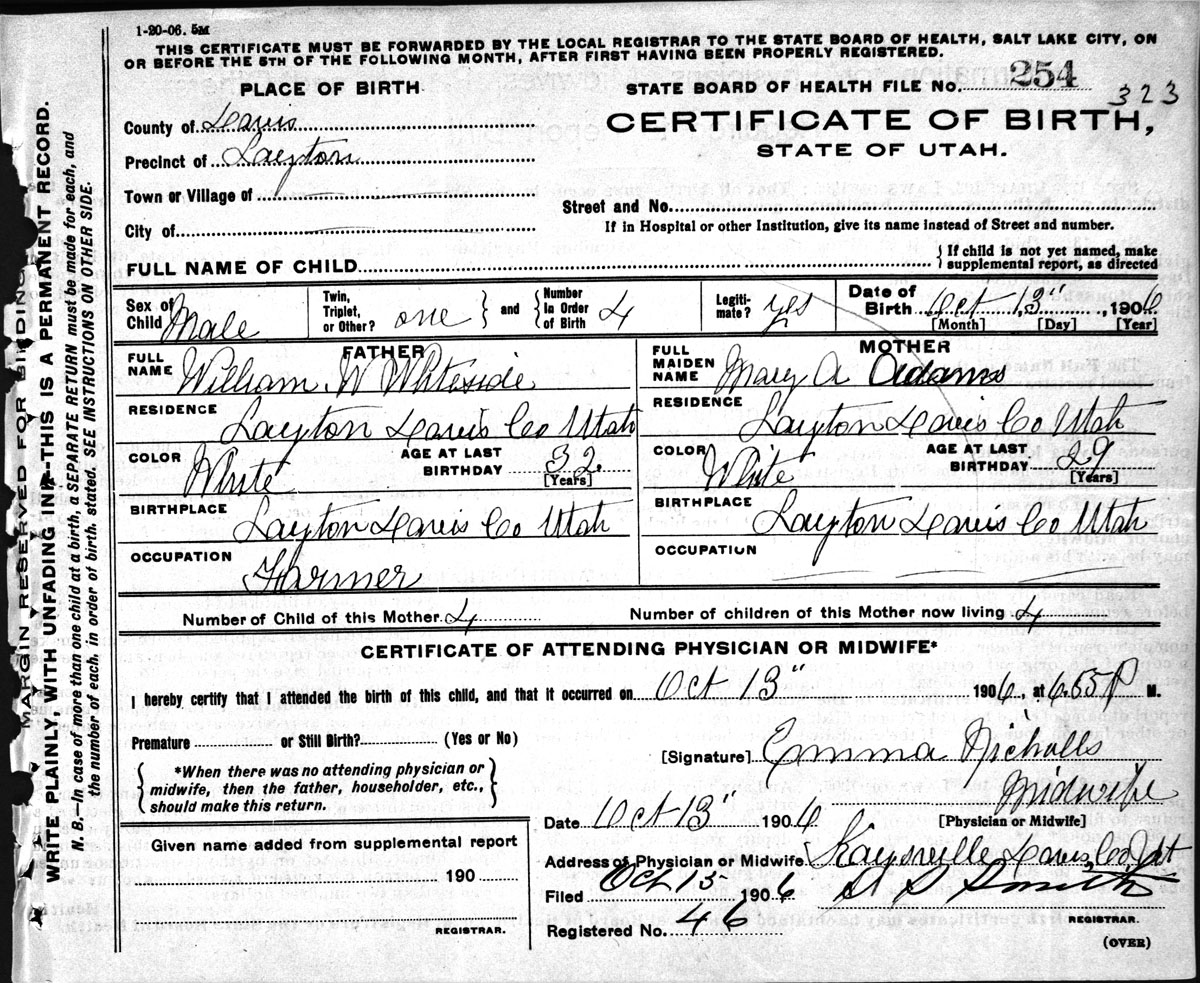 1-20-06. 5M
THIS CERTIFICATE MUST BE FORWARDED BY THE LOCAL REGISTRAR TO THE STATE BOARD OF HEALTH, SALT LAKE CITY, ON
OR BEFORE THE 5TH OF THE FOLLOWING MONTH, AFTER FIRST HAVING BEEN PROPERLY REGISTERED.
PLACE OF BIRTH
STATE BOARD OF HEALTH FILE NO. 254
323
CERTIFICATE OF BIRTH,
STATE OF UTAH.
County of Davis
Precinct of Layton
Town or Village of
City of
Street and No.
If in Hospital or other Institution, give its name instead of Street and number.
FULL NAME OF CHILD
If child is not yet named, make
supplemental report, as directed
Sex of Child Male
Twin, Triplet, or Other? one
and
Number in Order of Birth 4
Legitimate? yes
Date of Birth Oct 13" , 1906
[Month] [Day] [Year]
FATHER
FULL NAME William W Whiteside
RESIDENCE Layton Davis Co Utah
COLOR White
AGE AT LAST BIRTHDAY 32 [Years]
BIRTHPLACE Layton Davis Co Utah
OCCUPATION Farmer
MOTHER
FULL MAIDEN NAME Mary A Adams
RESIDENCE Layton Davis Co Utah
COLOR White
AGE AT LAST BIRTHDAY 29 [Years]
BIRTHPLACE Layton Davis Co Utah
OCCUPATION
Number of Child of this Mother 4 Number of children of this Mother now living 4
CERTIFICATE OF ATTENDING PHYSICIAN OR MIDWIFE*
I hereby certify that I attended the birth of this child, and that it occurred on Oct 13" 1906, at 6.55 P M.
Premature or Still Birth? (Yes or No)
*When there was no attending physician or
midwife, then the father, householder, etc.,
should make this return.
[Signature] Emma Nicholls
Midwife
[Physician or Midwife]
Date Oct 13" 1906
Address of Physician or Midwife Kaysville Davis Co Ut
Filed Oct 15 1906
Smith
REGISTRAR.
Registered No. 46
(OVER)
Given name added from supplemental report
190
REGISTRAR.
MARGIN RESERVED FOR BINDING
WRITE PLAINLY, WITH UNFADING INK--THIS IS A PERMANENT RECORD.
N. B.--In case of more than one child at a birth, a SEPARATE RETURN must be made for each, and
the number of each, in order of birth, stated. SEE INSTRUCTIONS ON OTHER SIDE.